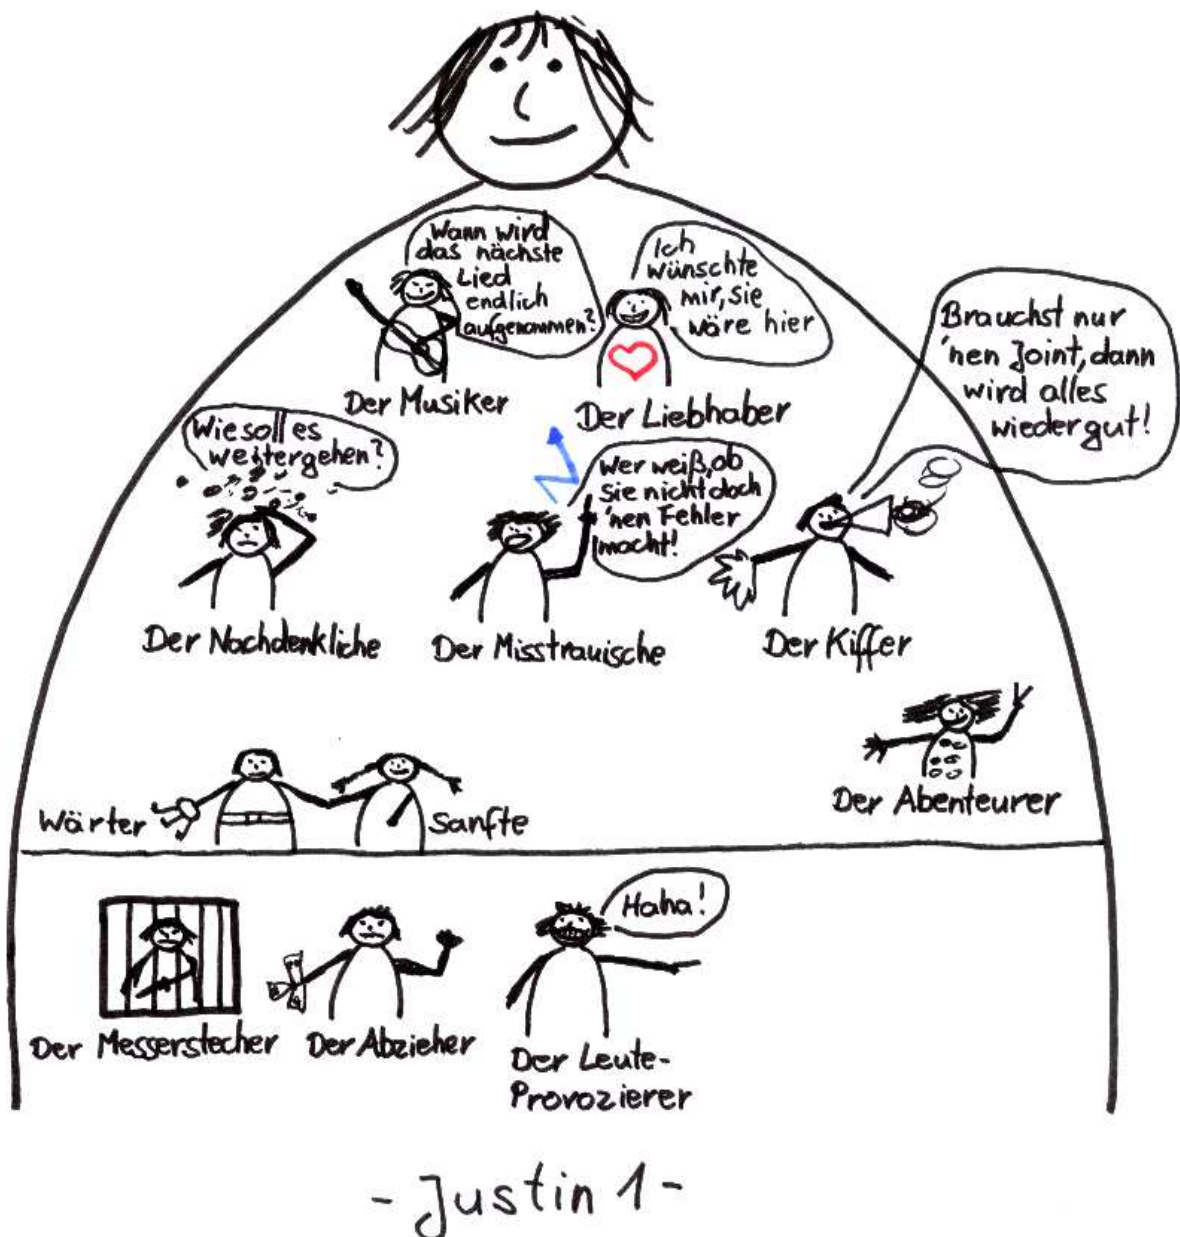 Wann wird
das nächste
Lied
endlich
aufgenommen?
Ich
wünschte
mir, sie
wäre hier
Brauchst nur
'nen Joint, dann
wird alles
wieder gut!
Der Musiker
Der Liebhaber
Wie soll es
weitergehen?
Wer weiß, ob
sie nicht doch
'nen Fehler
macht!
Der Nachdenkliche
Der Misstrauische
Der Kiffer
Der Abenteurer
Wärter
Sanfte
Haha!
Der Messerstecher
Der Abzieher
Der Leute-
Provozierer
- Justin 1 -